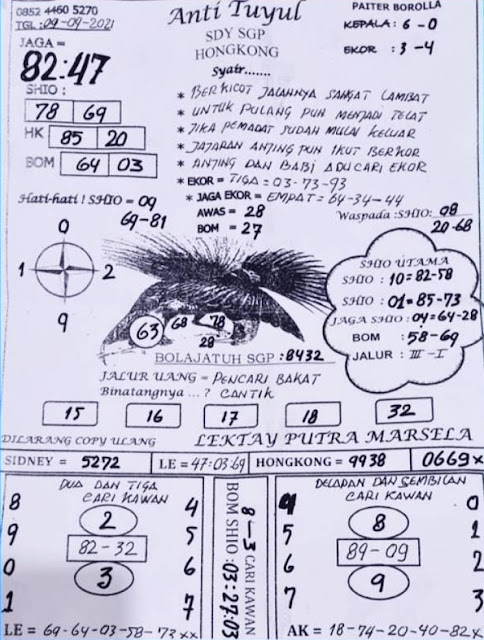 0852 4460 5270
TGL : 09-09-2021
Anti Tuyul
SDY SGP
HONGKONG
PAITER BOROLLA
KEPALA : 6 - 0
EKOR : 3 - 4
JAGA =
82:47
SHIO :
78 69
HK 85 20
BOM 64 03
Syair.......
* BERKICOT JALANNYA SANGAT LAMBAT
* UNTUK PULANG PUN MENJADI TELAT
* JIKA PEMADAT SUDAH MULAI KELUAR
* JAJARAN ANJING PUN IKUT BERKOR
* ANJING DAN BABI ADU CARI EKOR
* EKOR = TIGA = 03-73-93
* JAGA EKOR = EMPAT = 64-34-44
AWAS = 28
BOM = 27
Hati-hati ! SHIO = 09
69-81
Waspada :SHIO: 08
20-68
0
1 2
9
63 68 78
28
SHIO UTAMA
SHIO : 10=82-58
SHIO : 01=85-73
JAGA SHIO : 04=64-28
BOM : 58-69
JALUR : III - I
BOLAJATUH SGP : 8432
JALUR UANG = PENCARI BAKAT
Binatangnya ...? CANTIK
15 16 17 18 32
DILARANG COPY ULANG LEKTAY PUTRA MARSELA
SIDNEY = 5272 LE = 47-03-69 HONGKONG = 9938 0669x
DUA DAN TIGA
CARI KAWAN
8 4
2
9 5
82 - 32
0 6
3
1 7
LE = 69-64-03-58-73xx
BOM SHIO : 03:27-03
8-3 CARI KAWAN
DELAPAN DAN SEMBILAN
CARI KAWAN
4 0
8
5 1
89 - 09
6 2
9
7 3
AK = 18-74-20-40-82x